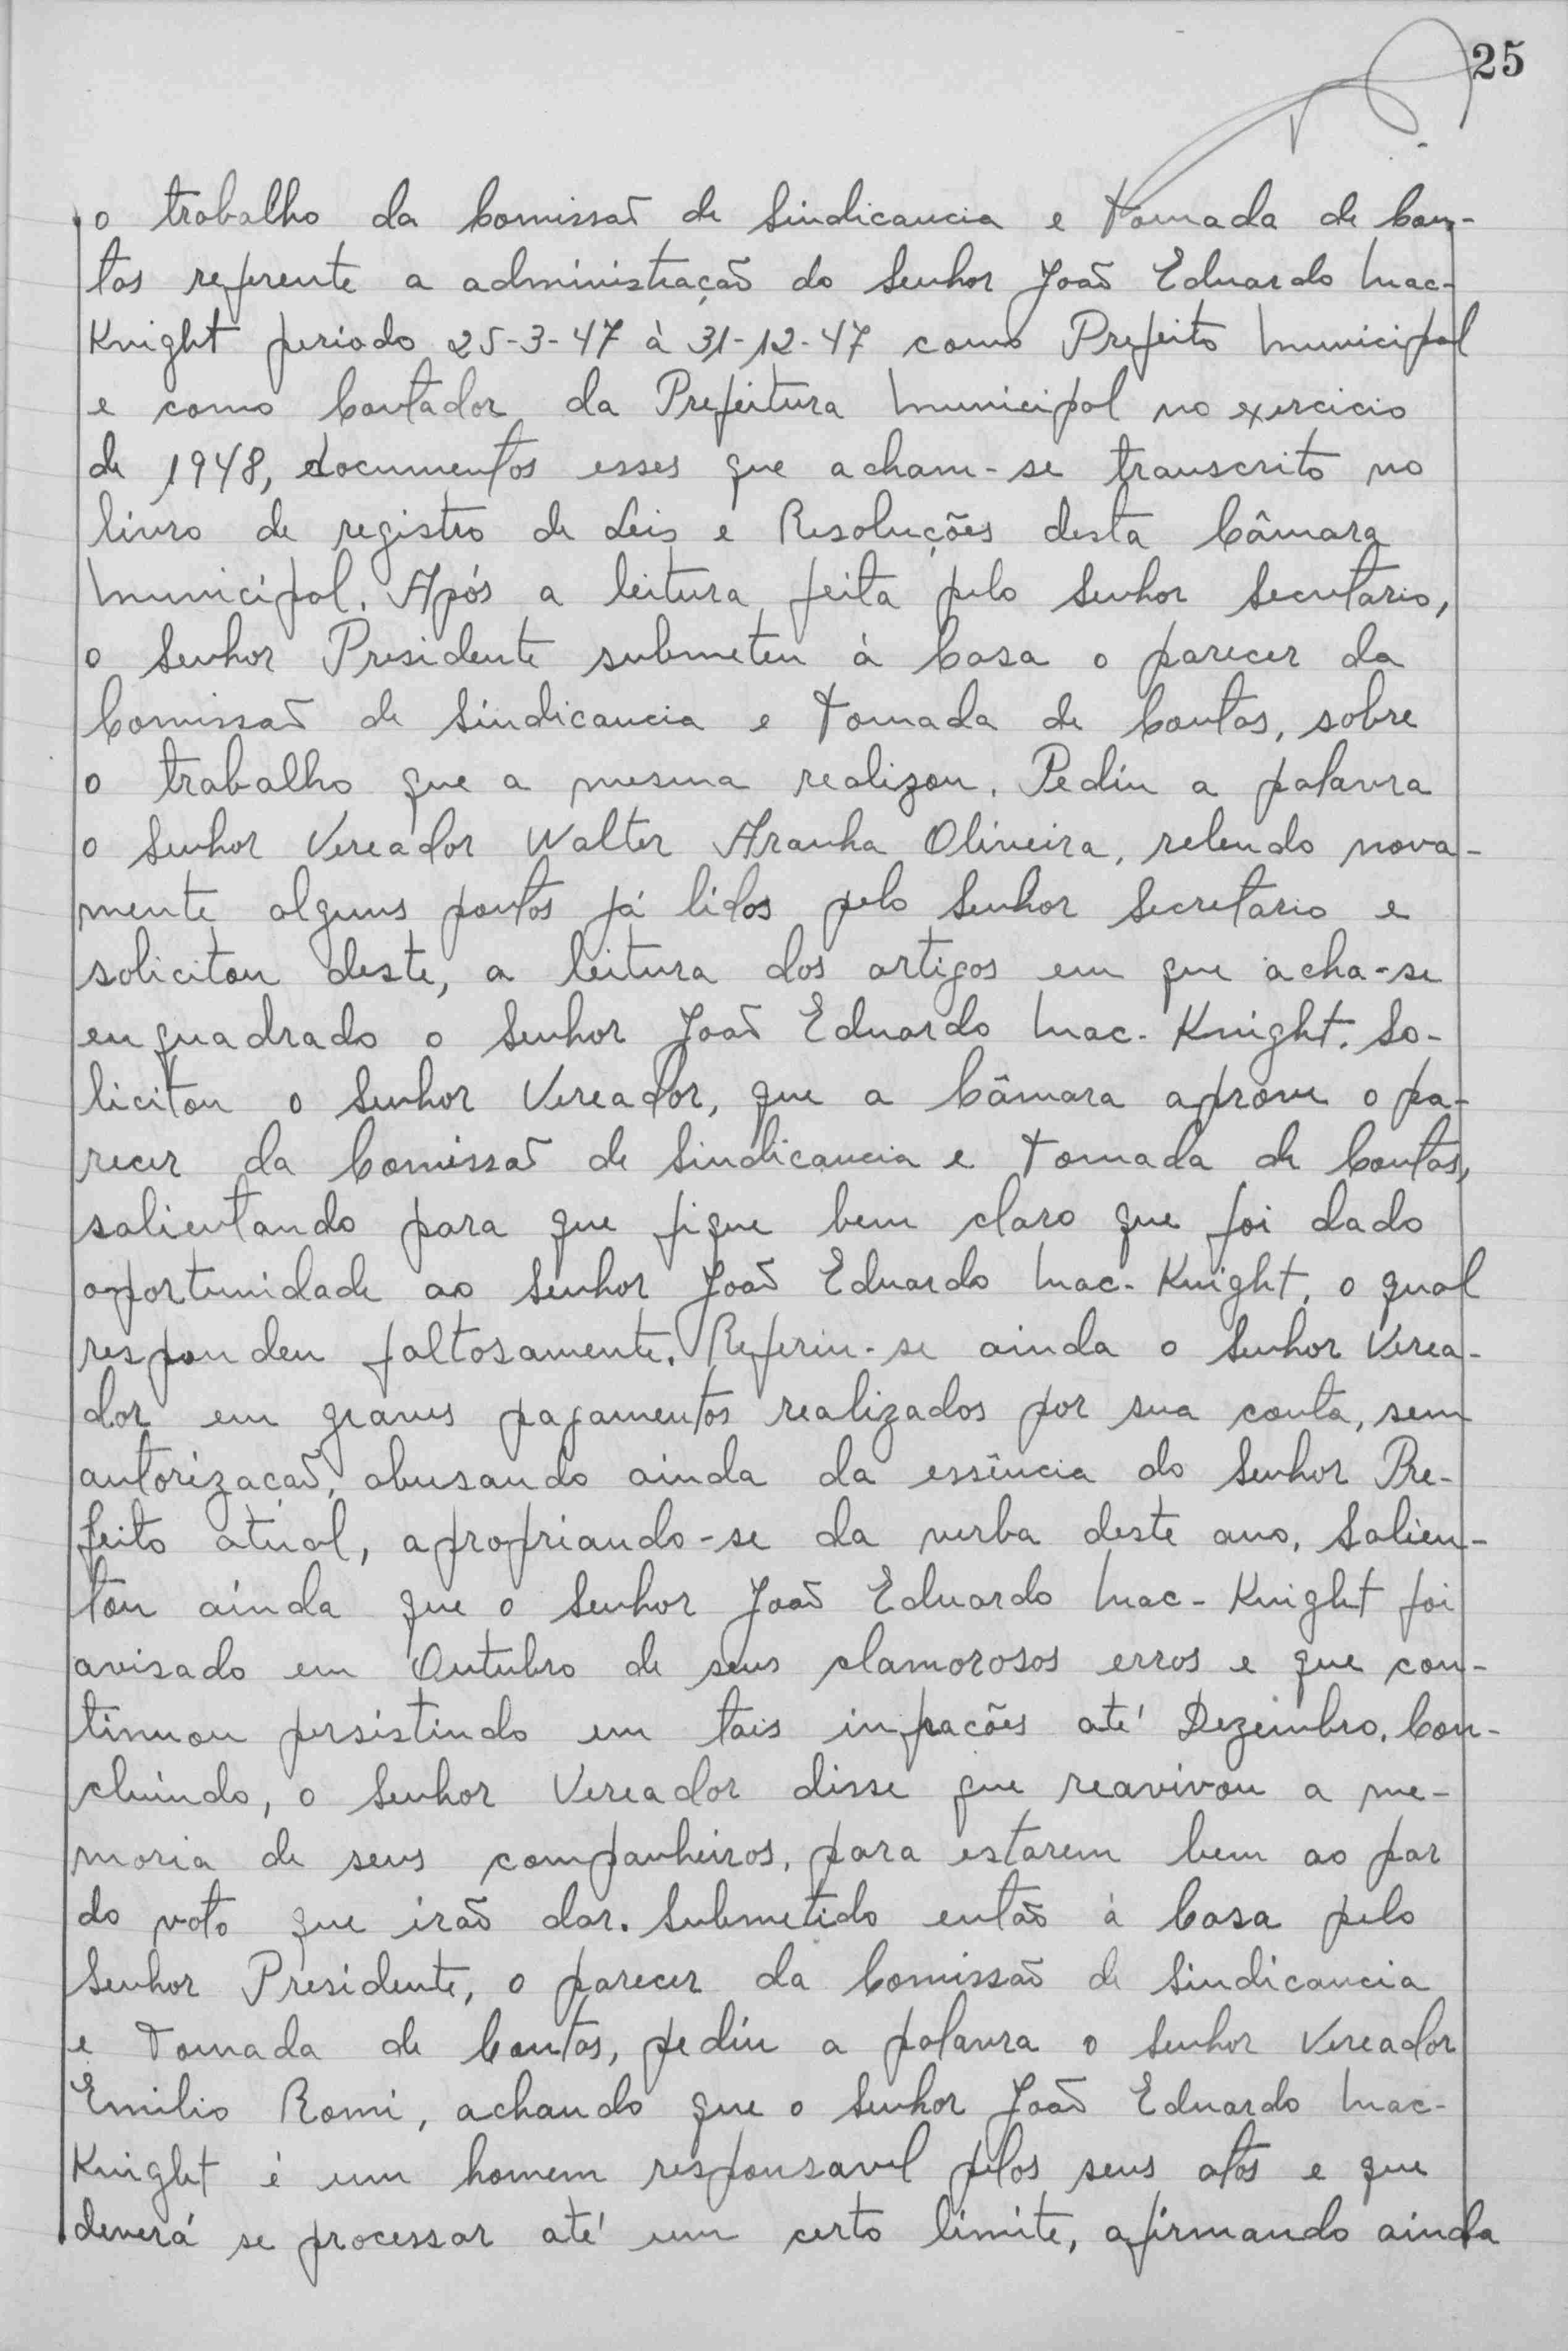 25
o trabalho da Comissaõ de Sindicancia e Tomada de Con-
tas referente a administraçaõ do Senhor Joaõ Eduardo Mac-
Knight periodo 25-3-47 à 31-12-47 como Prefeito Municipal
e como Contador da Prefeitura Municipal no exercicio
de 1948, documentos esses que acham-se transcrito no
livro de registro de Leis e Resoluções desta Câmara
Municipal. Após a leitura feita pelo Senhor Secretario,
o Senhor Presidente submeteu à Casa o parecer da
Comissaõ de Sindicancia e Tomada de Contas, sobre
o trabalho que a mesma realizou. Pediu a palavra
o Senhor Vereador Walter Aranha Oliveira, relendo nova-
mente alguns pontos já lidos pelo Senhor Secretario e
solicitou deste, a leitura dos artigos em que acha-se
enquadrado o Senhor Joaõ Eduardo Mac-Knight. So-
licitou o Senhor Vereador, que a Câmara aprove o pa-
recer da Comissaõ de Sindicancia e Tomada de Contas,
salientando para que fique bem claro que foi dado
oportunidade ao Senhor Joaõ Eduardo Mac-Knight, o qual
respondeu faltosamente. Referiu-se ainda o Senhor Verea-
dor em graves pagamentos realizados por sua conta, sem
autorizacaõ, abusando ainda da essência do Senhor Pre-
feito atúal, apropriando-se da verba deste ano. Salien-
tou ainda que o Senhor Joaõ Eduardo Mac-Knight foi
avisado em Outubro de seus clamorosos erros e que con-
tinuou persistindo em tais infracões até Dezembro. Con-
cluindo, o Senhor Vereador disse que reavivou a me-
moria de seus companheiros, para estarem bem ao par
do voto que iraõ dar. Submetido entaõ à Casa pelo
Senhor Presidente, o parecer da Comissaõ de Sindicancia
e Tomada de Contas, pediu a palavra o Senhor Vereador
Emilio Romi, achando que o Senhor Joaõ Eduardo Mac-
Knight é um homem responsavel pelos seus atos e que
deverá se processar até um certo limite, afirmando ainda